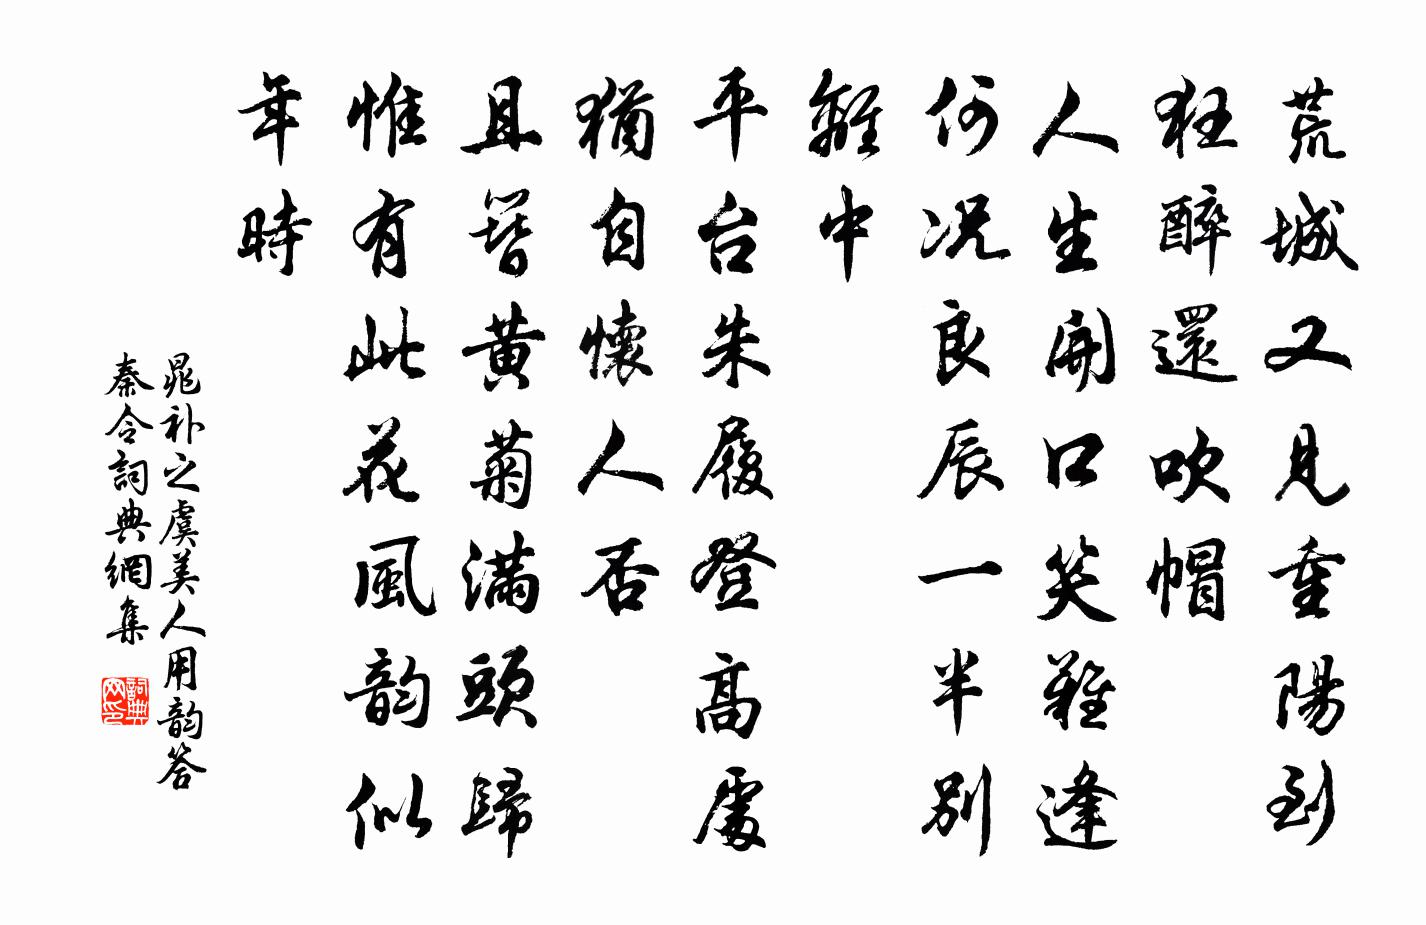 荒城又見重陽到
狂醉還吹帽
人生開口笑難逢
何况良辰一半別
離中
平台朱履登高處
猶自懷人否
且簪黃菊滿頭歸
惟有此花風韵似
年時
晁补之虞美人用韵答
秦令詞典網集
詞典
网印